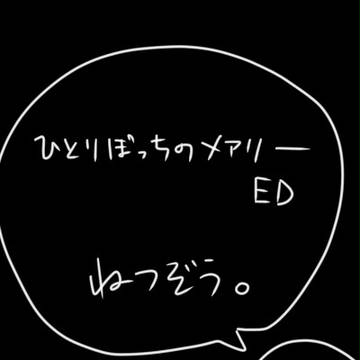 ひとりぼっちのメアリー
ED
ねつぞう。